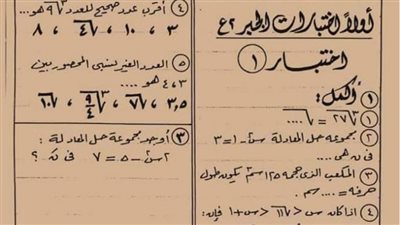 أولاً اختبارات الجبر ٢ع
اختبار (١)
(١) أكمل:
(١) ∛٢٧ = √....
(٢) مجموعة حل المعادلة س٢ - ١ = ٣
فى ن هى....
(٣) المكعب الذى حجمه ١٢٥ سم٣ يكون طول
حرفه = .... سم.
(٤) إذا كان س < √١١ < س + ١ فإن:
(٤) أقرب عدد صحيح للعدد ∛٩ هو...
٣ ، ١٠ ، √٤ ، ٨
(٥) العدد الغير نسبى المحصور بين
٣ ، ٤ هو....
٣,٥ ، √٧ ، √٩/٤ ، √١٠
(٣) أوجد مجموعة حل المعادلة :
٢س - ٥ = ٧ فى ن ؟